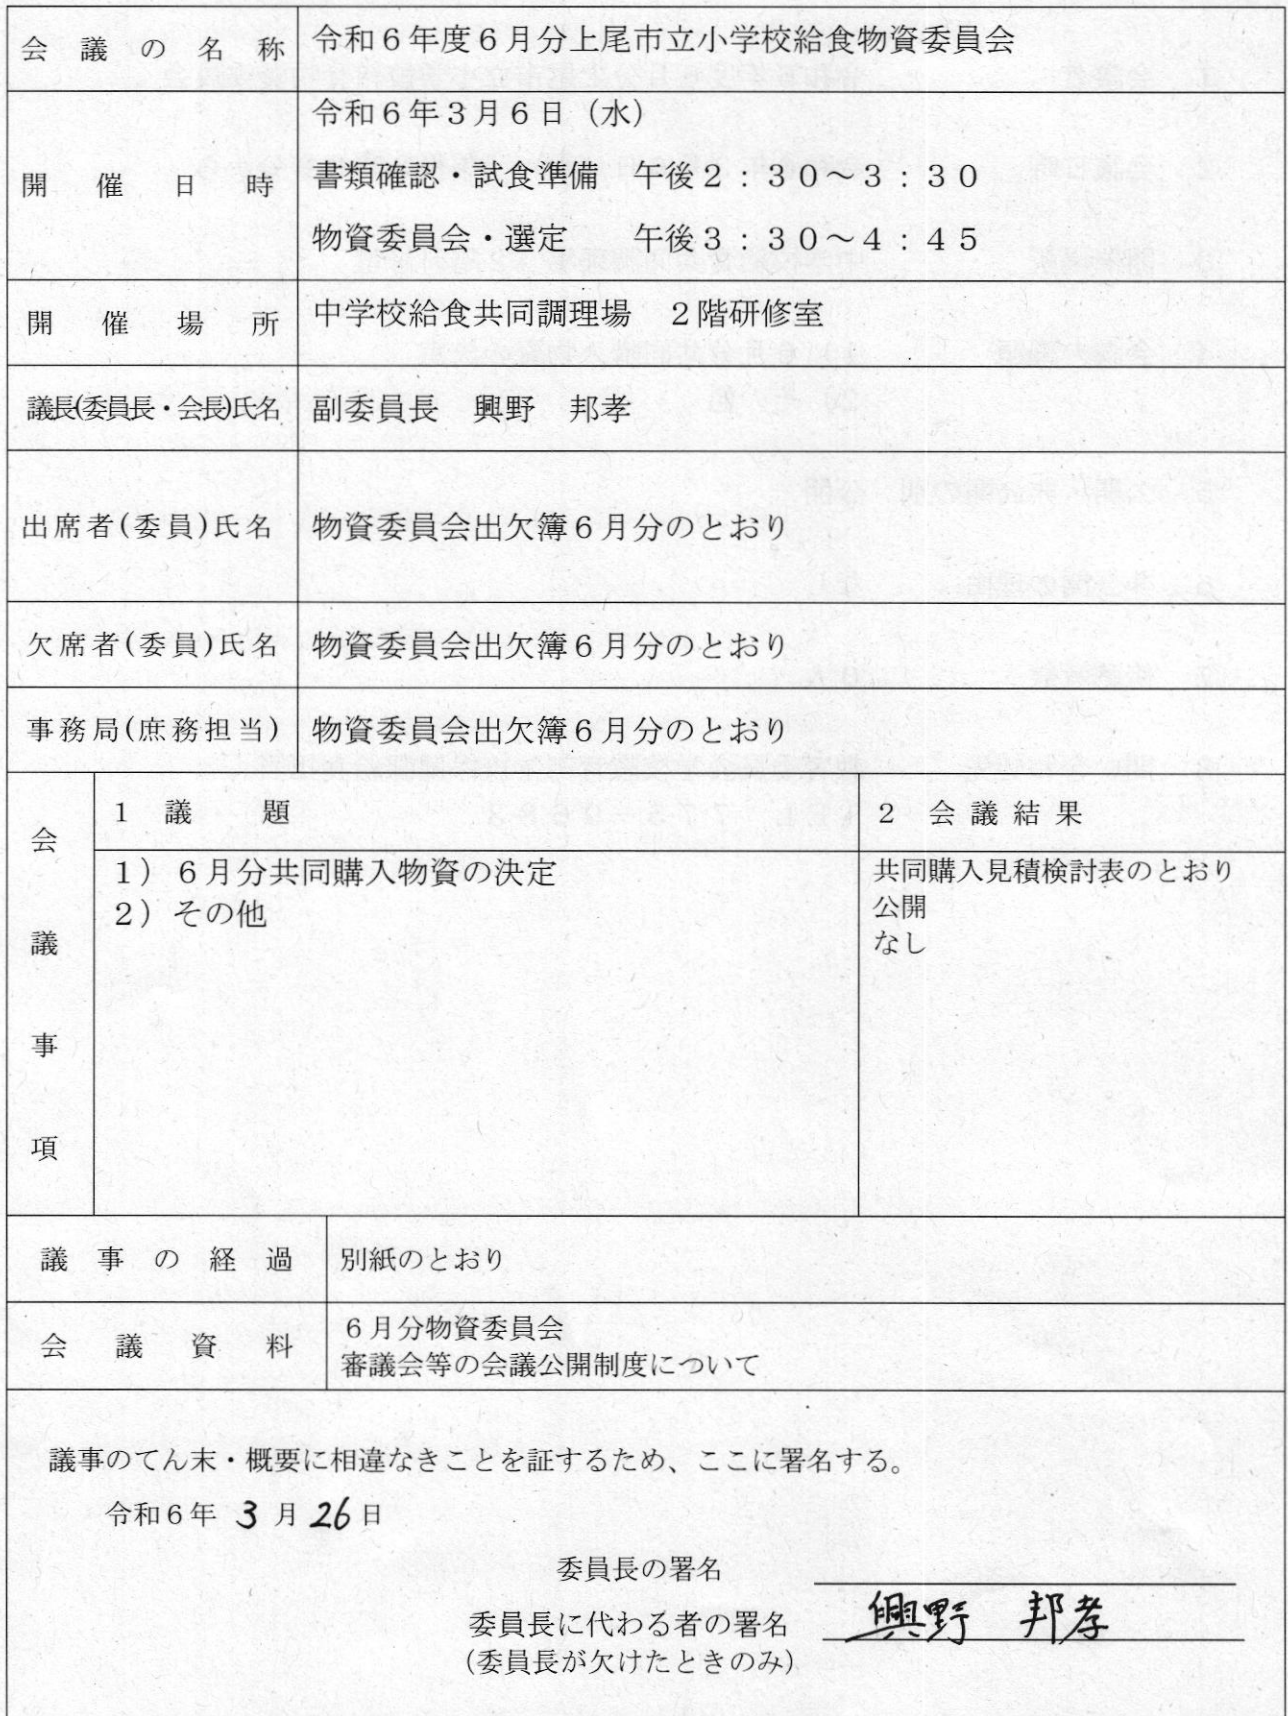 会議の名称 令和６年度６月分上尾市立小学校給食物資委員会
開催日時 令和６年３月６日（水）
書類確認・試食準備　午後２：３０～３：３０
物資委員会・選定　　午後３：３０～４：４５
開催場所 中学校給食共同調理場　２階研修室
議長(委員長・会長)氏名 副委員長　興野　邦孝
出席者(委員)氏名 物資委員会出欠簿６月分のとおり
欠席者(委員)氏名 物資委員会出欠簿６月分のとおり
事務局(庶務担当) 物資委員会出欠簿６月分のとおり
会議事項
１　議　　題
１）６月分共同購入物資の決定
２）その他
２　会議結果
共同購入見積検討表のとおり
公開
なし
議事の経過 別紙のとおり
会議資料 ６月分物資委員会
審議会等の会議公開制度について
議事のてん末・概要に相違なきことを証するため、ここに署名する。
令和６年 3 月 26 日
委員長の署名
委員長に代わる者の署名 興野 邦孝
(委員長が欠けたときのみ)